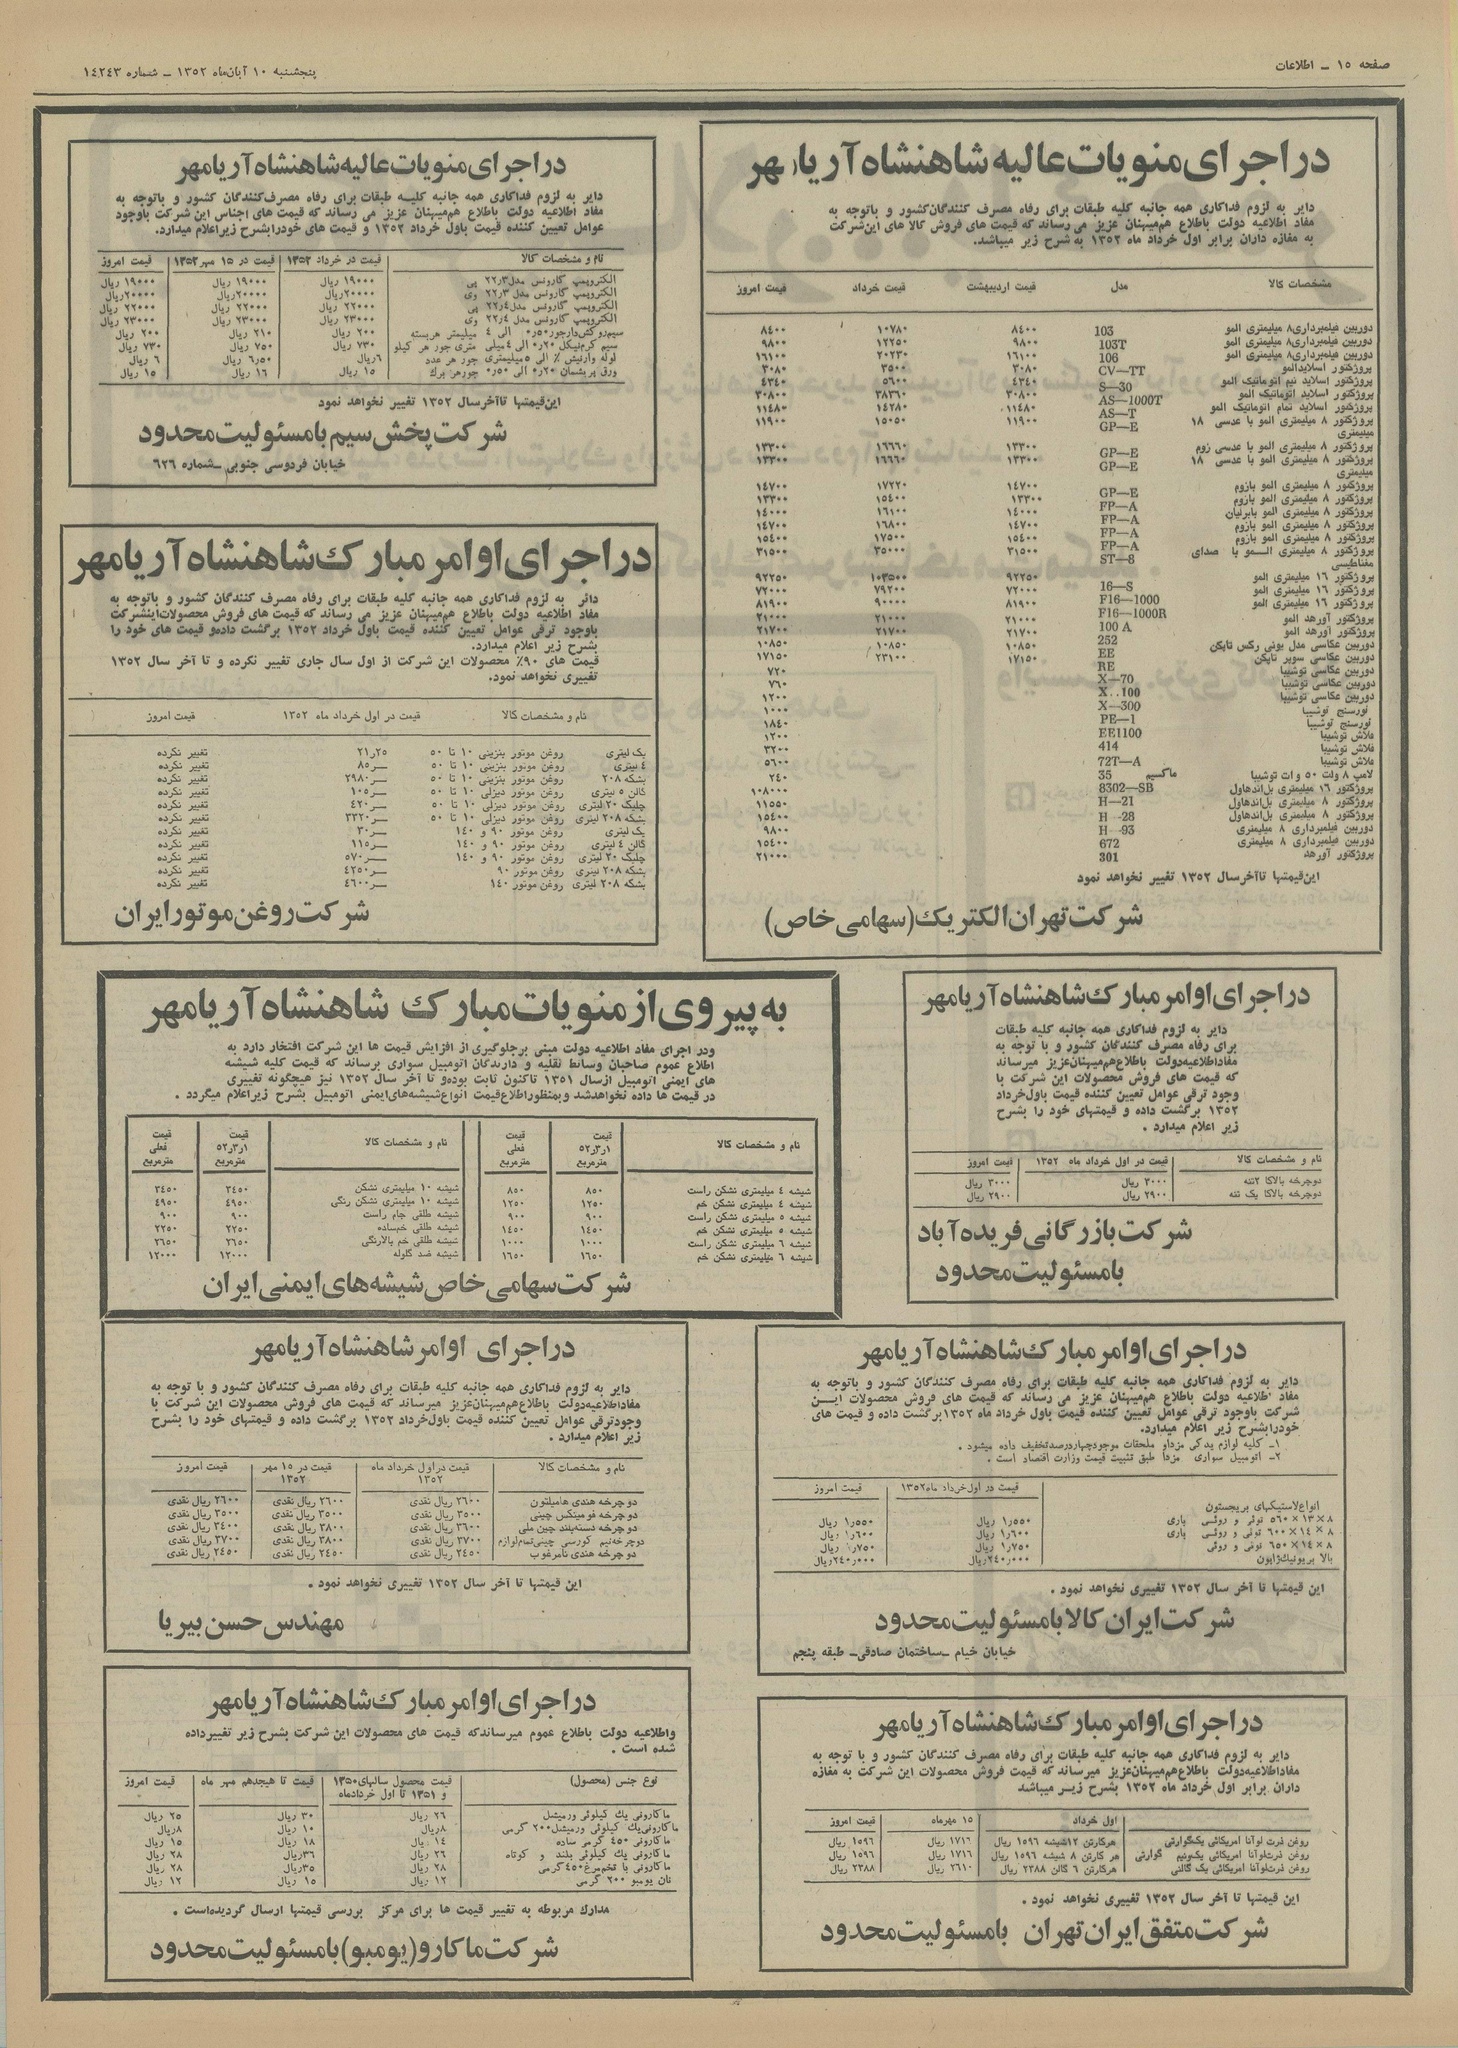 صفحه ۱۵ ـ اطلاعات
پنجشنبه ۱۰ آبان‌ماه ۱۳۵۲ ـ شماره ۱۴۲۴۳
در اجرای منویات عالیه شاهنشاه آریامهر
دایر به لزوم فداکاری همه جانبه کلیه طبقات برای رفاه مصرف کنندگان کشور و باتوجه به
مفاد اطلاعیه دولت باطلاع هم‌میهنان عزیز می رساند که قیمت های فروش کالا های این شرکت
به مغازه داران برابر اول خرداد ماه ۱۳۵۲ به شرح زیر میباشد.
مشخصات کالا مدل قیمت اردیبهشت قیمت خرداد قیمت امروز
دوربین فیلمبرداری ۸ میلیمتری المو 103 ۸۴۰۰ ۱۰۷۸۰ ۸۴۰۰
دوربین فیلمبرداری ۸ میلیمتری المو 103T ۹۸۰۰ ۱۲۲۵۰ ۹۸۰۰
دوربین فیلمبرداری ۸ میلیمتری المو 106 ۱۶۱۰۰ ۲۰۲۳۰ ۱۶۱۰۰
پروژکتور اسلاید المو CV—TT ۳۰۸۰ ۳۵۰۰ ۳۰۸۰
پروژکتور اسلاید نیم اتوماتیک المو S—30 ۴۳۴۰ ۵۶۰۰ ۴۳۴۰
پروژکتور اسلاید اتوماتیک المو AS—1000T ۳۰۸۰۰ ۳۸۳۶۰ ۳۰۸۰۰
پروژکتور اسلاید تمام اتوماتیک المو AS—T ۱۱۴۸۰ ۱۴۲۸۰ ۱۱۴۸۰
پروژکتور ۸ میلیمتری المو با عدسی ۱۸ GP—E ۱۱۹۰۰ ۱۵۰۵۰ ۱۱۹۰۰
میلیمتری
پروژکتور ۸ میلیمتری المو با عدسی زوم GP—E ۱۳۳۰۰ ۱۶۶۶۰ ۱۳۳۰۰
پروژکتور ۸ میلیمتری المو با عدسی ۱۸ GP—E ۱۳۳۰۰ ۱۶۶۶۰ ۱۳۳۰۰
میلیمتری
پروژکتور ۸ میلیمتری المو بازوم GP—E ۱۴۷۰۰ ۱۷۲۲۰ ۱۴۷۰۰
پروژکتور ۸ میلیمتری المو بازوم FP—A ۱۳۳۰۰ ۱۵۴۰۰ ۱۳۳۰۰
پروژکتور ۸ میلیمتری المو FP—A ۱۴۰۰۰ ۱۶۱۰۰ ۱۴۰۰۰
پروژکتور ۸ میلیمتری المو بازوم FP—A ۱۴۷۰۰ ۱۶۸۰۰ ۱۴۷۰۰
پروژکتور ۸ میلیمتری المو بازوم FP—A ۱۵۴۰۰ ۱۷۵۰۰ ۱۵۴۰۰
پروژکتور ۸ میلیمتری المو با صدای ST—8 ۳۱۵۰۰ ۳۵۰۰۰ ۳۱۵۰۰
مغناطیسی
پروژکتور ۱۶ میلیمتری المو 16—S ۹۲۲۵۰ ۱۰۳۵۰۰ ۹۲۲۵۰
پروژکتور ۱۶ میلیمتری المو F16—1000 ۷۲۰۰۰ ۷۹۲۰۰ ۷۲۰۰۰
پروژکتور ۱۶ میلیمتری المو F16—1000R ۸۱۹۰۰ ۹۰۰۰۰ ۸۱۹۰۰
پروژکتور آورهد المو 100 A ۲۱۰۰۰ ۲۱۰۰۰ ۲۱۰۰۰
پروژکتور آورهد المو 252 ۲۱۷۰۰ ۲۱۷۰۰ ۲۱۷۰۰
دوربین عکاسی مدل یونی رکس تاپکن EE ۱۰۸۵۰ ۱۰۸۵۰ ۱۰۸۵۰
دوربین عکاسی سوپر تاپکن RE ۱۷۱۵۰ ۲۳۱۰۰ ۱۷۱۵۰
دوربین عکاسی توشیبا X—70 ۷۲۰
دوربین عکاسی توشیبا X..100 ۷۶۰
دوربین عکاسی توشیبا X—300 ۱۲۰۰
نورسنج توشیبا PE—1 ۱۰۰۰
نورسنج توشیبا EE1100 ۱۸۴۰
فلاش توشیبا 414 ۱۲۰۰
فلاش توشیبا ۳۲۰۰
فلاش توشیبا 72T—A ۵۶۰۰
لامپ ۸ ولت ۵۰ وات توشیبا ماکسیم 35 ۲۴۰
پروژکتور ۱۶ میلیمتری بل‌اندهاول 8302—SB ۱۰۸۰۰۰
پروژکتور ۸ میلیمتری بل‌اندهاول H—21 ۱۱۵۵۰
پروژکتور ۸ میلیمتری بل‌اندهاول H—28 ۱۵۴۰۰
دوربین فیلمبرداری ۸ میلیمتری H—93 ۹۸۰۰
دوربین فیلمبرداری ۸ میلیمتری 672 ۱۵۴۰۰
پروژکتور آورهد 301 ۲۱۰۰۰
این قیمتها تا آخر سال ۱۳۵۲ تغییر نخواهد نمود
شرکت تهران الکتریک (سهامی خاص)
در اجرای منویات عالیه شاهنشاه آریامهر
دایر به لزوم فداکاری همه جانبه کلیه طبقات برای رفاه مصرف‌کنندگان کشور و باتوجه به
مفاد اطلاعیه دولت باطلاع هم‌میهنان عزیز می رساند که قیمت های اجناس این شرکت باوجود
عوامل تعیین کننده قیمت باول خرداد ۱۳۵۲ و قیمت های خودرا بشرح زیر اعلام میدارد.
نام و مشخصات کالا قیمت در خرداد ۱۳۵۲ قیمت در ۱۵ مهر ۱۳۵۲ قیمت امروز
الکتروپمپ کاروتس مدل ۲۲ر۳ پی ۱۹۰۰۰ ریال ۱۹۰۰۰ ریال ۱۹۰۰۰ ریال
الکتروپمپ کاروتس مدل ۲۲ر۳ وی ۲۰۰۰۰ ریال ۲۰۰۰۰ ریال ۲۰۰۰۰ ریال
الکتروپمپ کاروتس مدل ۲۲ر۴ پی ۲۲۰۰۰ ریال ۲۲۰۰۰ ریال ۲۲۰۰۰ ریال
الکتروپمپ کاروتس مدل ۲۲ر۴ وی ۲۳۰۰۰ ریال ۲۳۰۰۰ ریال ۲۳۰۰۰ ریال
سیم روکش‌دار جور ۵۰ر۰ الی ۴ میلیمتر هربسته ۲۰۰ ریال ۲۱۰ ریال ۲۰۰ ریال
سیم کرم‌نیکل ۲۰ر۰ الی ۴ میلی متری جور هر کیلو ۷۳۰ ریال ۷۵۰ ریال ۷۳۰ ریال
لوله وارنیش الی ۵ میلیمتری جور هر عدد ۶ ریال ۵۰ر۶ ریال ۶ ریال
ورق پرشمان ۲۰ر۰ الی ۵۰ر۰ جور هر برگ ۱۵ ریال ۱۶ ریال ۱۵ ریال
این قیمتها تا آخر سال ۱۳۵۲ تغییر نخواهد نمود
شرکت پخش سیم بامسئولیت محدود
خیابان فردوسی جنوبی ـ شماره ۶۲۶
در اجرای اوامر مبارک شاهنشاه آریامهر
دائر به لزوم فداکاری همه جانبه کلیه طبقات برای رفاه مصرف کنندگان کشور و باتوجه به
مفاد اطلاعیه دولت باطلاع هم‌میهنان عزیز می رساند که قیمت های فروش محصولات اینشرکت
باوجود ترقی عوامل تعیین کننده قیمت باول خرداد ۱۳۵۲ برگشت داده و قیمت های خود را
بشرح زیر اعلام میدارد.
قیمت های ۹۰٪ محصولات این شرکت از اول سال جاری تغییر نکرده و تا آخر سال ۱۳۵۲
تغییری نخواهد نمود.
نام و مشخصات کالا قیمت در اول خرداد ماه ۱۳۵۲ قیمت امروز
یک لیتری روغن موتور بنزینی ۱۰ تا ۵۰ ۲۵ر۲۱ تغییر نکرده
۴ لیتری روغن موتور بنزینی ۱۰ تا ۵۰ ــر۸۵ تغییر نکرده
بشکه ۲۰۸ روغن موتور بنزینی ۱۰ تا ۵۰ ــر۲۹۸۰ تغییر نکرده
گالن ۵ لیتری روغن موتور دیزلی ۱۰ تا ۵۰ ــر۱۰۵ تغییر نکرده
چلیک ۲۰ لیتری روغن موتور دیزلی ۱۰ تا ۵۰ ــر۴۲۰ تغییر نکرده
بشکه ۲۰۸ لیتری روغن موتور دیزلی ۱۰ تا ۵۰ ــر۳۳۲۰ تغییر نکرده
یک لیتری روغن موتور ۹۰ و ۱۴۰ ــر۳۰ تغییر نکرده
گالن ۴ لیتری روغن موتور ۹۰ و ۱۴۰ ــر۱۱۵ تغییر نکرده
چلیک ۲۰ لیتری روغن موتور ۹۰ و ۱۴۰ ــر۵۷۰ تغییر نکرده
بشکه ۲۰۸ لیتری روغن موتور ۹۰ ــر۴۲۵۰ تغییر نکرده
بشکه ۲۰۸ لیتری روغن موتور ۱۴۰ ــر۴۶۰۰ تغییر نکرده
شرکت روغن موتور ایران
در اجرای اوامر مبارک شاهنشاه آریامهر
دایر به لزوم فداکاری همه جانبه کلیه طبقات
برای رفاه مصرف کنندگان کشور و با توجه به
مفاد اطلاعیه دولت باطلاع هم‌میهنان عزیز میرساند
که قیمت های فروش محصولات این شرکت با
وجود ترقی عوامل تعیین کننده قیمت باول خرداد
۱۳۵۲ برگشت داده و قیمتهای خود را بشرح
زیر اعلام میدارد .
نام و مشخصات کالا قیمت در اول خرداد ماه ۱۳۵۲ قیمت امروز
دوچرخه بالاکا ۲تنه ۳۰۰۰ ریال ۳۰۰۰ ریال
دوچرخه بالاکا یک تنه ۲۹۰۰ ریال ۲۹۰۰ ریال
شرکت بازرگانی فریده آباد
بامسئولیت محدود
به پیروی از منویات مبارک شاهنشاه آریامهر
ودر اجرای مفاد اطلاعیه دولت مبنی برجلوگیری از افزایش قیمت ها این شرکت افتخار دارد به
اطلاع عموم صاحبان وسائط نقلیه و دارندگان اتومبیل سواری برساند که قیمت کلیه شیشه
های ایمنی اتومبیل ازسال ۱۳۵۱ تاکنون ثابت بوده و تا آخر سال ۱۳۵۲ نیز هیچگونه تغییری
در قیمت ها داده نخواهدشد و بمنظور اطلاع قیمت انواع شیشه‌های ایمنی اتومبیل بشرح زیر اعلام میگردد .
نام و مشخصات کالا قیمت ۱ر۳ر۵۲ مترمربع قیمت فعلی مترمربع نام و مشخصات کالا قیمت ۱ر۳ر۵۲ مترمربع قیمت فعلی مترمربع
شیشه ۴ میلیمتری نشکن راست ۸۵۰ ۸۵۰ شیشه ۱۰ میلیمتری نشکن ۳۴۵۰ ۳۴۵۰
شیشه ۴ میلیمتری نشکن خم ۱۲۵۰ ۱۲۵۰ شیشه ۱۰ میلیمتری نشکن رنگی ۴۹۵۰ ۴۹۵۰
شیشه ۵ میلیمتری نشکن راست ۹۰۰ ۹۰۰ شیشه طلقی جام راست ۹۰۰ ۹۰۰
شیشه ۵ میلیمتری نشکن خم ۱۴۵۰ ۱۴۵۰ شیشه طلقی خم‌ساده ۲۲۵۰ ۲۲۵۰
شیشه ۶ میلیمتری نشکن راست ۱۰۰۰ ۱۰۰۰ شیشه طلقی خم بالارنگی ۲۶۵۰ ۲۶۵۰
شیشه ۶ میلیمتری نشکن خم ۱۶۵۰ ۱۶۵۰ شیشه ضد گلوله ۱۲۰۰۰ ۱۲۰۰۰
شرکت سهامی خاص شیشه‌های ایمنی ایران
در اجرای اوامر مبارک شاهنشاه آریامهر
دایر به لزوم فداکاری همه جانبه کلیه طبقات برای رفاه مصرف کنندگان کشور و باتوجه به
مفاد اطلاعیه دولت باطلاع هم‌میهنان عزیز می رساند که قیمت های فروش محصولات ایـن
شرکت باوجود ترقی عوامل تعیین کننده قیمت باول خرداد ماه ۱۳۵۲ برگشت داده و قیمت های
خودرا بشرح زیر اعلام میدارد.
۱ـ کلیه لوازم یدکی مزدا و ملحقات موجود چهاردرصد تخفیف داده میشود .
۲ـ اتومبیل سواری مزدا طبق تثبیت قیمت وزارت اقتصاد است .
قیمت در اول خرداد ماه ۱۳۵۲ قیمت امروز
انواع لاستیکهای بریجستون
۸ × ۱۳ × ۵۶۰ توئی و روئی باری ۱٫۵۵۰ ریال ۱٫۵۵۰ ریال
۸ × ۱۴ × ۶۰۰ توئی و روئی باری ۱٫۶۰۰ ریال ۱٫۶۰۰ ریال
۸ × ۱۴ × ۶۵۰ توئی و روئی ۱٫۷۵۰ ریال ۱٫۷۵۰ ریال
ژاپون ۲۴۰٫۰۰۰ ریال ۲۴۰٫۰۰۰ ریال
این قیمتها تا آخر سال ۱۳۵۲ تغییری نخواهد نمود .
شرکت ایران کالا بامسئولیت محدود
خیابان خیام ـ ساختمان صادقی ـ طبقه پنجم
در اجرای اوامر شاهنشاه آریامهر
دایر به لزوم فداکاری همه جانبه کلیه طبقات برای رفاه مصرف کنندگان کشور و با توجه به
مفاد اطلاعیه دولت باطلاع هم‌میهنان عزیز میرساند که قیمت های فروش محصولات این شرکت با
وجود ترقی عوامل تعیین کننده قیمت باول خرداد ۱۳۵۲ برگشت داده و قیمتهای خود را بشرح
زیر اعلام میدارد .
نام و مشخصات کالا قیمت در اول خرداد ماه ۱۳۵۲ قیمت در ۱۵ مهر ۱۳۵۲ قیمت امروز
دوچرخه هندی هامیلتون ۲۶۰۰ ریال نقدی ۲۶۰۰ ریال نقدی ۲۶۰۰ ریال نقدی
دوچرخه فونیکس چینی ۳۵۰۰ ریال نقدی ۳۵۰۰ ریال نقدی ۳۵۰۰ ریال نقدی
دوچرخه دسته‌بلند چین ملی ۳۶۰۰ ریال نقدی ۳۸۰۰ ریال نقدی ۳۴۰۰ ریال نقدی
دوچرخه نیم کورسی چینی تمام لوازم ۳۷۰۰ ریال نقدی ۳۸۰۰ ریال نقدی ۳۷۰۰ ریال نقدی
دوچرخه هندی نامرغوب ۲۴۵۰ ریال نقدی ۲۴۵۰ ریال نقدی ۲۴۵۰ ریال نقدی
این قیمتها تا آخر سال ۱۳۵۲ تغییری نخواهد نمود .
مهندس حسن بیریا
در اجرای اوامر مبارک شاهنشاه آریامهر
دایر به لزوم فداکاری همه جانبه کلیه طبقات برای رفاه مصرف کنندگان کشور و با توجه به
مفاد اطلاعیه دولت باطلاع هم‌میهنان عزیز میرساند که قیمت فروش محصولات این شرکت به مغازه
داران برابر اول خرداد ماه ۱۳۵۲ بشرح زیر میباشد
اول خرداد ۱۵ مهرماه قیمت امروز
روغن ذرت لوآنا امریکائی یک‌گوارتی هرکارتن ۱۲شیشه ۱۵۹۶ ریال ۱۷۱۶ ریال ۱۵۹۶ ریال
روغن ذرت لوآنا امریکائی یک‌ونیم گوارتی هر کارتن ۸ شیشه ۱۵۹۶ ریال ۱۷۱۶ ریال ۱۵۹۶ ریال
روغن ذرت لوآنا امریکائی یک گالنی هرکارتن ۶ گالن ۲۳۸۸ ریال ۲۶۱۰ ریال ۲۳۸۸ ریال
این قیمتها تا آخر سال ۱۳۵۲ تغییری نخواهد نمود .
شرکت متفق ایران تهران بامسئولیت محدود
در اجرای اوامر مبارک شاهنشاه آریامهر
واطلاعیه دولت باطلاع عموم میرساند که قیمت های محصولات این شرکت بشرح زیر تغییر داده
شده است .
نوع جنس (محصول) قیمت محصول سالهای ۱۳۵۰ و ۱۳۵۱ تا اول خرداد ماه قیمت تا هیجدهم مهر ماه قیمت امروز
ماکارونی یک کیلوئی ورمیشل ۲۶ ریال ۳۰ ریال ۲۵ ریال
ماکارونی یک کیلوئی ورمیشل ۲۰۰ گرمی ۸ ریال ۱۰ ریال ۸ ریال
ماکارونی ۴۵۰ گرمی ساده ۱۴ ریال ۱۸ ریال ۱۵ ریال
ماکارونی یک کیلوئی بلند و کوتاه ۲۶ ریال ۳۶ ریال ۲۸ ریال
ماکارونی با تخم‌مرغ ۴۵۰ گرمی ۲۸ ریال ۳۵ ریال ۲۸ ریال
نان یومبو ۲۰۰ گرمی ۱۲ ریال ۱۵ ریال ۱۲ ریال
مدارک مربوطه به تغییر قیمت ها برای مرکز بررسی قیمتها ارسال گردیده است .
شرکت ماکارو (یومبو) بامسئولیت محدود